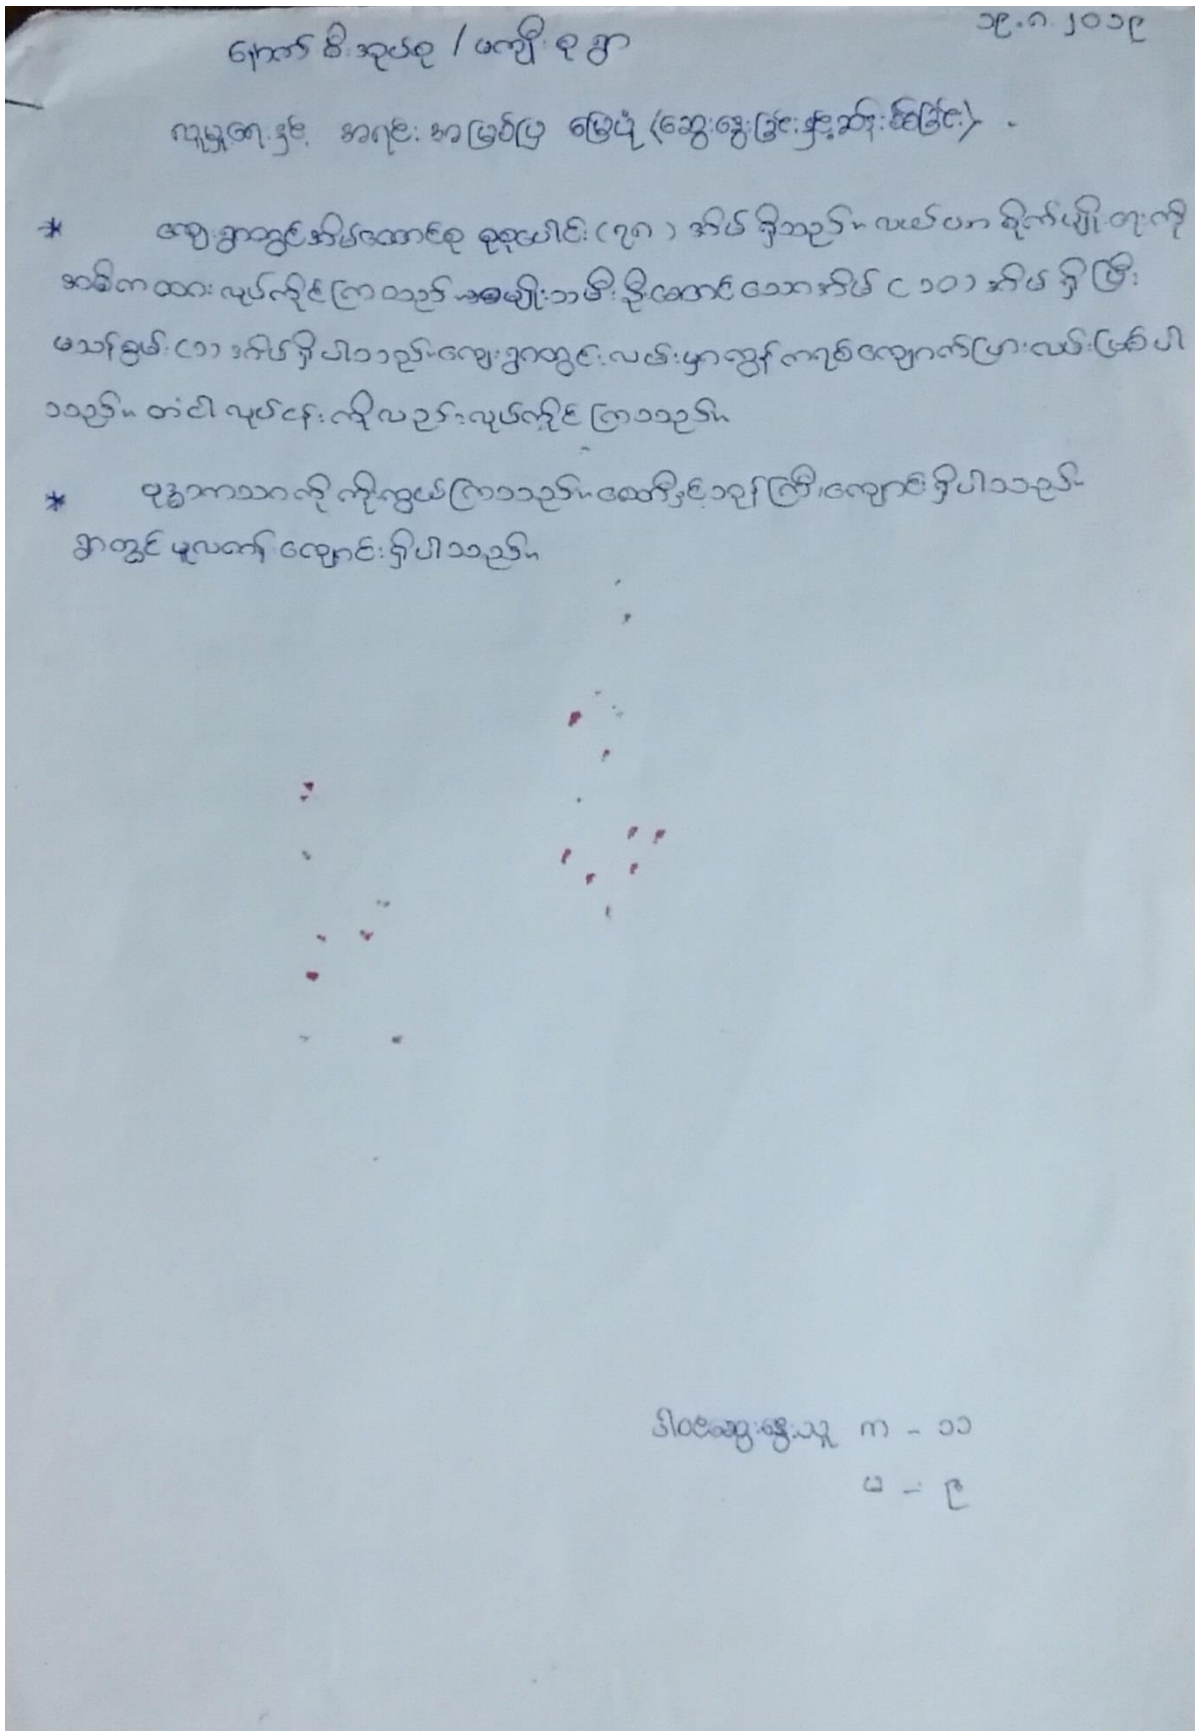 ၁၉.၈.၂၀၁၉
နောက်မီးအုပ်စု / မကျီးစုရွာ
လူမှုရေးနှင့် အရင်းအမြစ်ပြ မြေပုံ (ဆွေးနွေးခြင်းနှင့်ဆန်းစစ်ခြင်း)
* ကျေးရွာတွင်အိမ်ထောင်စု စုစုပေါင်း (၇၈) အိမ် ရှိသည်။ လယ်ယာ စိုက်ပျိုးရေးကို
အဓိကထား လုပ်ကိုင်ကြသည်။ အမျိုးသမီးဦးဆောင်သောအိမ် (၁၀) အိမ် ရှိပြီး
မသန်စွမ်း (၁) အိမ် ရှိပါသည်။ ကျေးရွာတွင်းလမ်းမှာကွန်ကရစ်ကျောက်ပြားလမ်းဖြစ်ပါ
သည်။ တံငါလုပ်ငန်းကိုလည်းလုပ်ကိုင်ကြသည်။
* ဗုဒ္ဓဘာသာကို ကိုးကွယ်ကြသည်။ စေတီနှင့်ဘုန်းကြီးကျောင်းရှိပါသည်။
ရွာတွင် မူလတန်းကျောင်းရှိပါသည်။
ပါဝင်ဆွေးနွေးသူ ကာ - ၁၁
မ - ၉